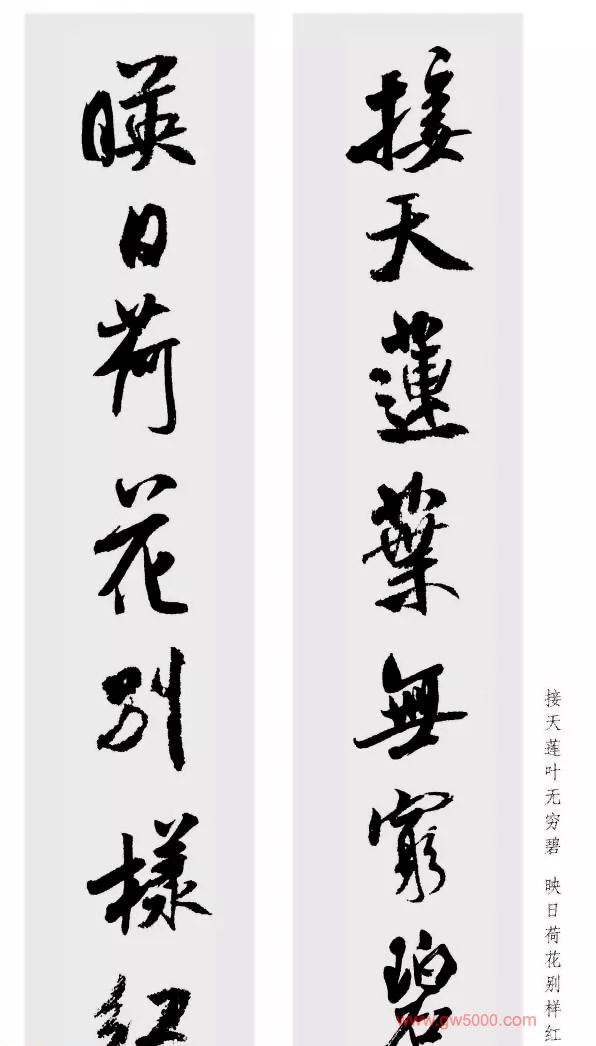 接天蓮葉無窮碧
暎日荷花别樣紅
接天莲叶无穷碧 映日荷花别样红
www.gw5000.com